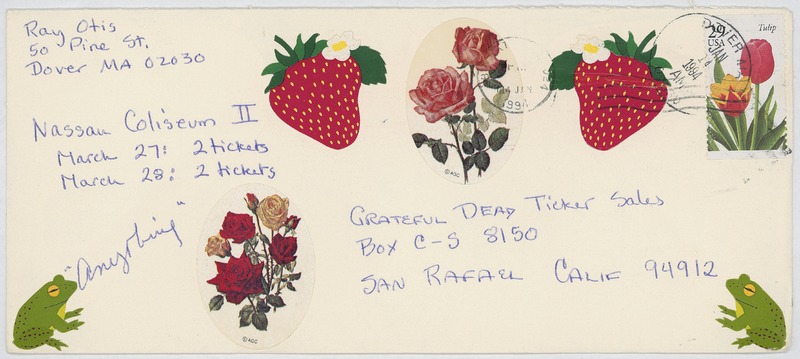 Ray Otis
50 Pine St.
Dover MA 02030
Nassau Coliseum II
March 27: 2 tickets
March 28: 2 tickets
"anything"
Grateful Dead Ticket Sales
Box C-S 8150
San Rafael Calif 94912
29
USA
Tulip
DOVER
JAN
1994
AM
1994
©AGC
©AGC